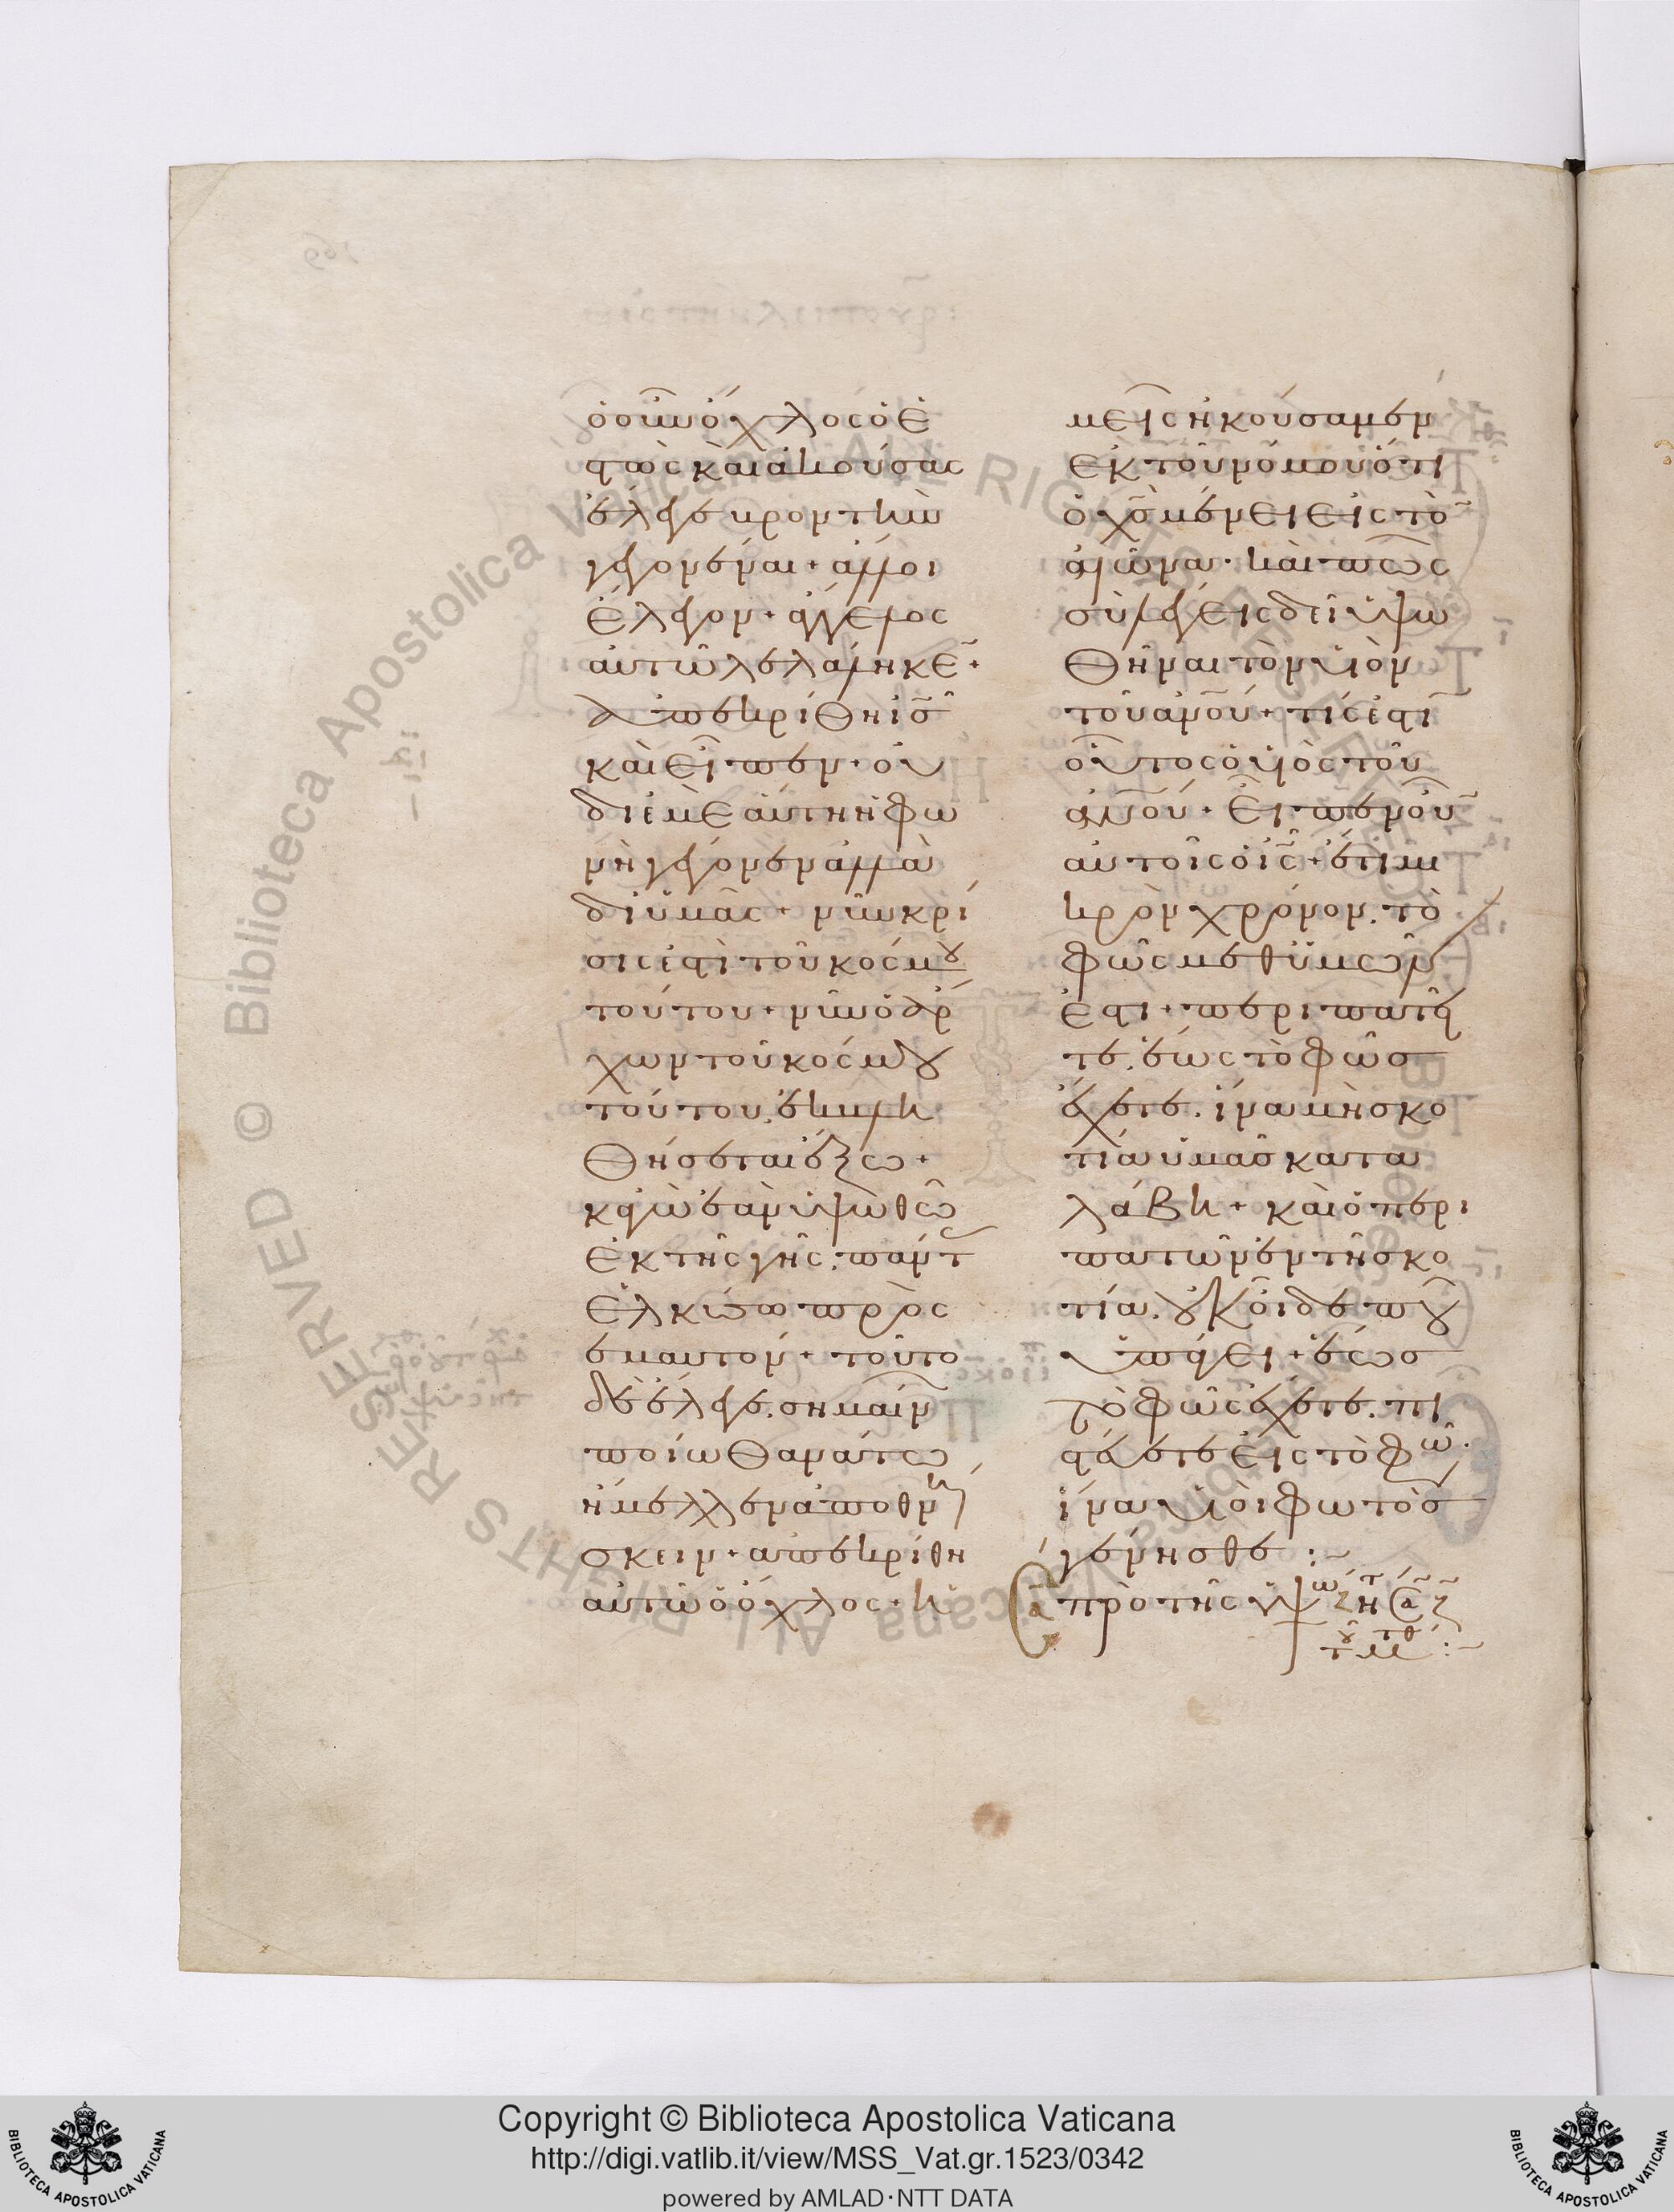 ὁ οὖν ὄχλος ὁ ἑ
στὼς καὶ ἀκούσας
ἔλεγε βροντὴν
γεγονέναι + ἄλλοι
ἔλεγον + ἄγγελος
αὐτῶ λελάληκε +
ἀπεκρίθη ὁ ι̅ς̅
καὶ εἶπεν · οὐ
δι ἐμὲ αὕτη ἡ φω
νὴ γέγονεν ἀλλὰ
δι ὑμᾶς + νῦν κρί
σις ἐστὶ τοῦ κόσμου
τούτου + νῦν ὁ ἄρ
χων τοῦ κόσμου
τούτου ἐκβλη
θήσεται ἔξω +
κἀγὼ ἐὰν ὑψωθῶ
ἐκ τῆς γῆς · πάντ
ἑλκύσω πρὸς
ἐμαυτόν + τοῦτο
δὲ ἔλεγε · σημαίν
ποίω θανάτω
ἤμελλεν ἀποθνή
σκειν + ἀπεκρίθη
αὐτῶ ὁ ὄχλος + ἡ
μεῖς ἠκούσαμεν
ἐκ τοῦ νόμου ὅτι
ὁ χ̅ς̅ μένει εἰς τὸ
αἰῶνα · καὶ πῶς
σὺ λέγεις δεῖ ὑψω
θῆναι τὸν υἱὸν
τοῦ α̅ν̅ου̅ + τίς ἐστι
οὗτος ὁ υἱὸς τοῦ
α̅ν̅ου̅ + εἶπεν οὖν
αὐτοῖς ὁ ι̅ς̅ + ἔτι μι
κρὸν χρόνον · τὸ
φῶς μεθ ὑμῶν
ἐστι + περιπατεῖ
τε · ἕως τὸ φῶσ
ἔχετε · ἵνα μὴ σκο
τία ὑμᾶσ κατα
λάβη + καὶ ὁ περι
πατῶν ἐν τῆ σκο
τία · οὐκ οἶδε ποῦ
ὑπάγει + ἕωσ
τὸ φῶς ἔχετε · πι
στεύετε εἰς τὸ φῶ ·
ἵνα υἱοὶ φωτὸσ
γένησθε :~
πρὸ τῆς ὑψώ
Copyright © Biblioteca Apostolica Vaticana
http://digi.vatlib.it/view/MSS_Vat.gr.1523/0342
powered by AMLAD·NTT DATA
BIBLIOTECA APOSTOLICA VATICANA
BIBLIOTECA APOSTOLICA VATICANA